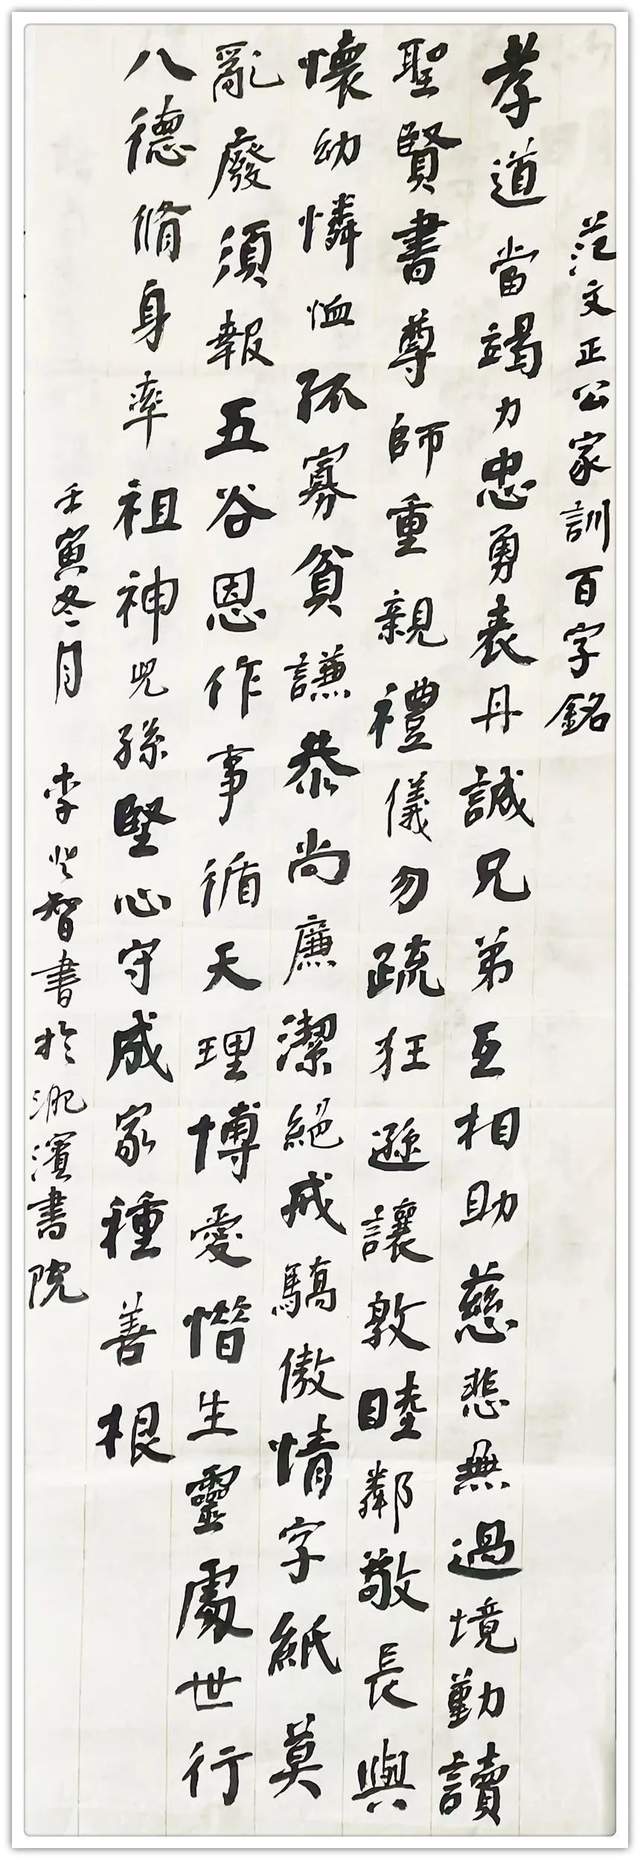 范文正公家訓百字銘
孝道當竭力忠勇表丹誠兄弟互相助慈悲無過境勤讀
聖賢書尊師重親禮儀勿疏狂遜讓敦睦鄰敬長與
懷幼憐恤孤寡貧謙恭尚廉潔絕戒驕傲情字紙莫
亂廢須報五谷恩作事循天理博愛惜生靈處世行
八德脩身率祖神児孫堅心守成家種善根
壬寅冬月 李 智書於淝濱書院